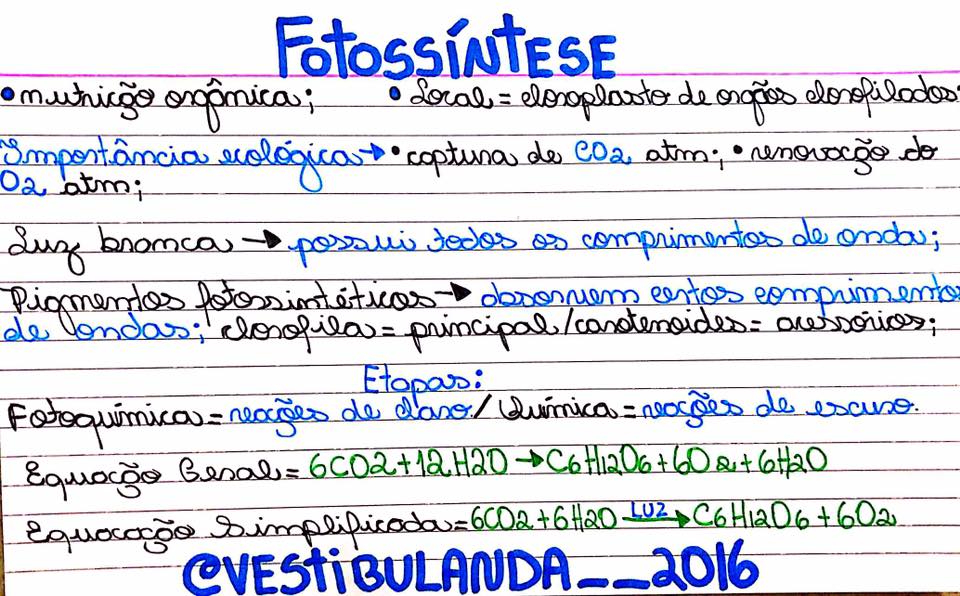 FOTOSSÍNTESE
• nutrição orgânica; • Local = cloroplasto de orgãos clorofilados.
Importância ecológica → • captura de CO2 atm; • renovação do
O2 atm;
Luz branca → possui todos os comprimentos de onda;
Pigmentos fotossintéticos → absorvem certos comprimentos
de ondas; clorofila = principal / carotenoides = acessórios;
Etapas:
Fotoquímica = reações de claro / Química = reações de escuro.
Equação Geral = 6CO2 + 12H2O → C6H12O6 + 6O2 + 6H2O
Equocoção Simplificada = 6CO2 + 6H2O LUZ → C6H12O6 + 6O2
@VESTIBULANDA__2016